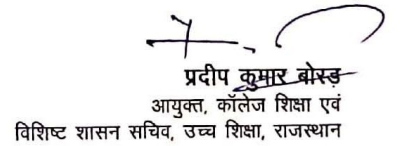 प्रदीप कुमार बोरड़
आयुक्त, कॉलेज शिक्षा एवं
विशिष्ट शासन सचिव, उच्च शिक्षा, राजस्थान